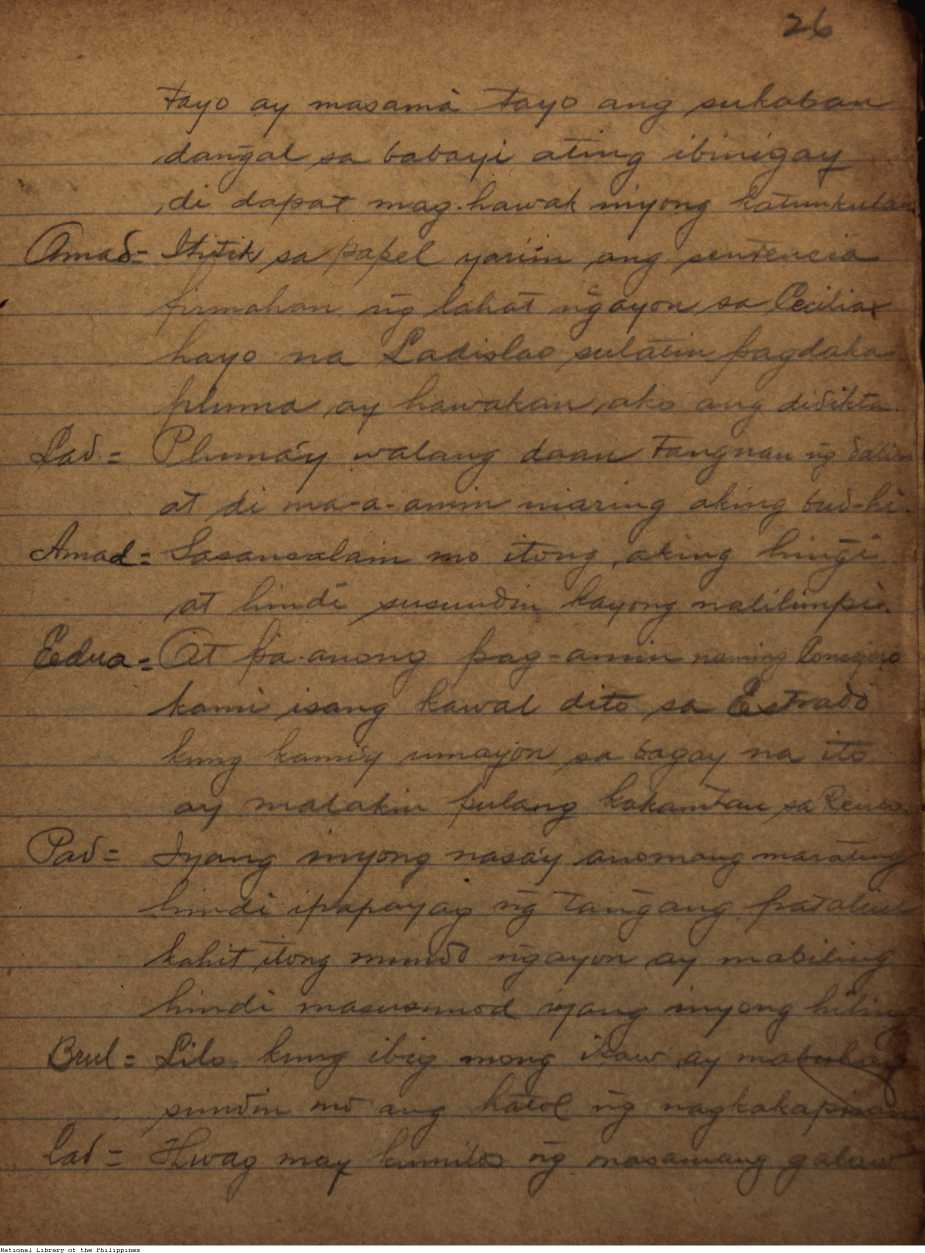 26
tayo ay masamâ tayo ang sukaban
dangal sa babayi ating ibinigay
di dapat mag-hawak inyong katunkulan
Amad= Ititik sa papel yariin ang sentencia
firmahan ng lahat ngayon sa Cecilia
hayo na Ladislao sulatin pagdaka
pluma ay hawakan ako ang didikta
Lad= Pluma'y walang daan tangnan ng
at di ma-a-amin niaring aking bud-hi.
Amad= Sasansalain mo itong aking hingi
at hindi susundin kayong nalilimpi.
Edua= At pa-anong pag-amin naming
kami isang kawal dito sa Estrado
kung kami'y umayon sa bagay na ito
ay malaking pulang kakamtan sa
Pad= Iyang inyong nasa'y anomang marating
hindi ipapayag ng tangang patalim
kahit itong mundo ngayon ay mabiling
hindi masusunod iyang inyong hiling
Brul= Lilo kung ibig mong ikaw ay mabuhay
sundin mo ang hatol ng
Lad= Hwag may kumilos ng masamang galaw
National Library of the Philippines